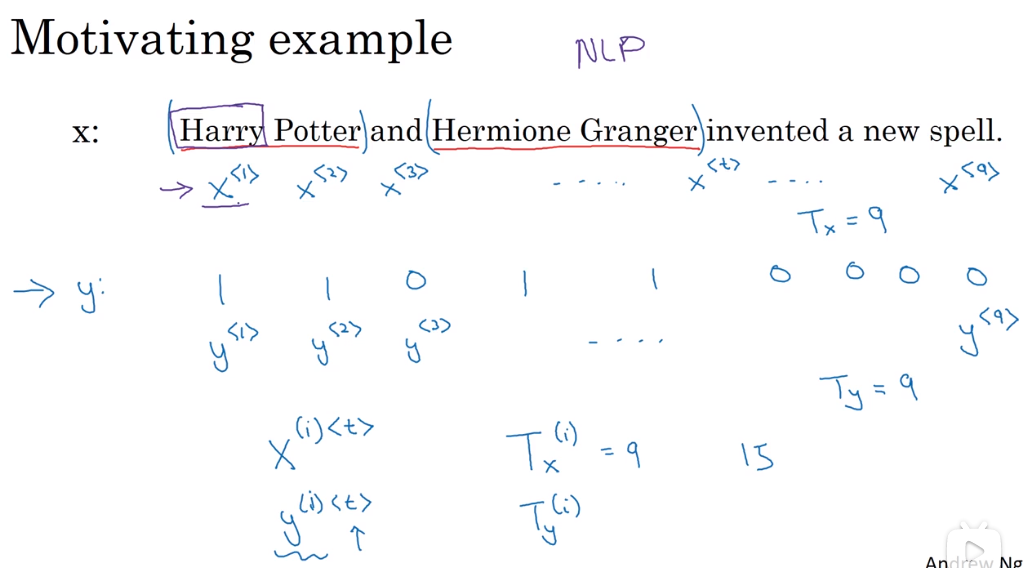 Motivating example
NLP
x: (Harry Potter) and (Hermione Granger) invented a new spell.
→ x<1> x<2> x<3> ..... x<t> .... x<9>
Tx = 9
→ y: 1 1 0 1 1 0 0 0 0
y<1> y<2> y<3> .... y<9>
Ty = 9
X(i)<t> Tx(i) = 9 15
y(i)<t> Ty(i)
↑
Andrew Ng